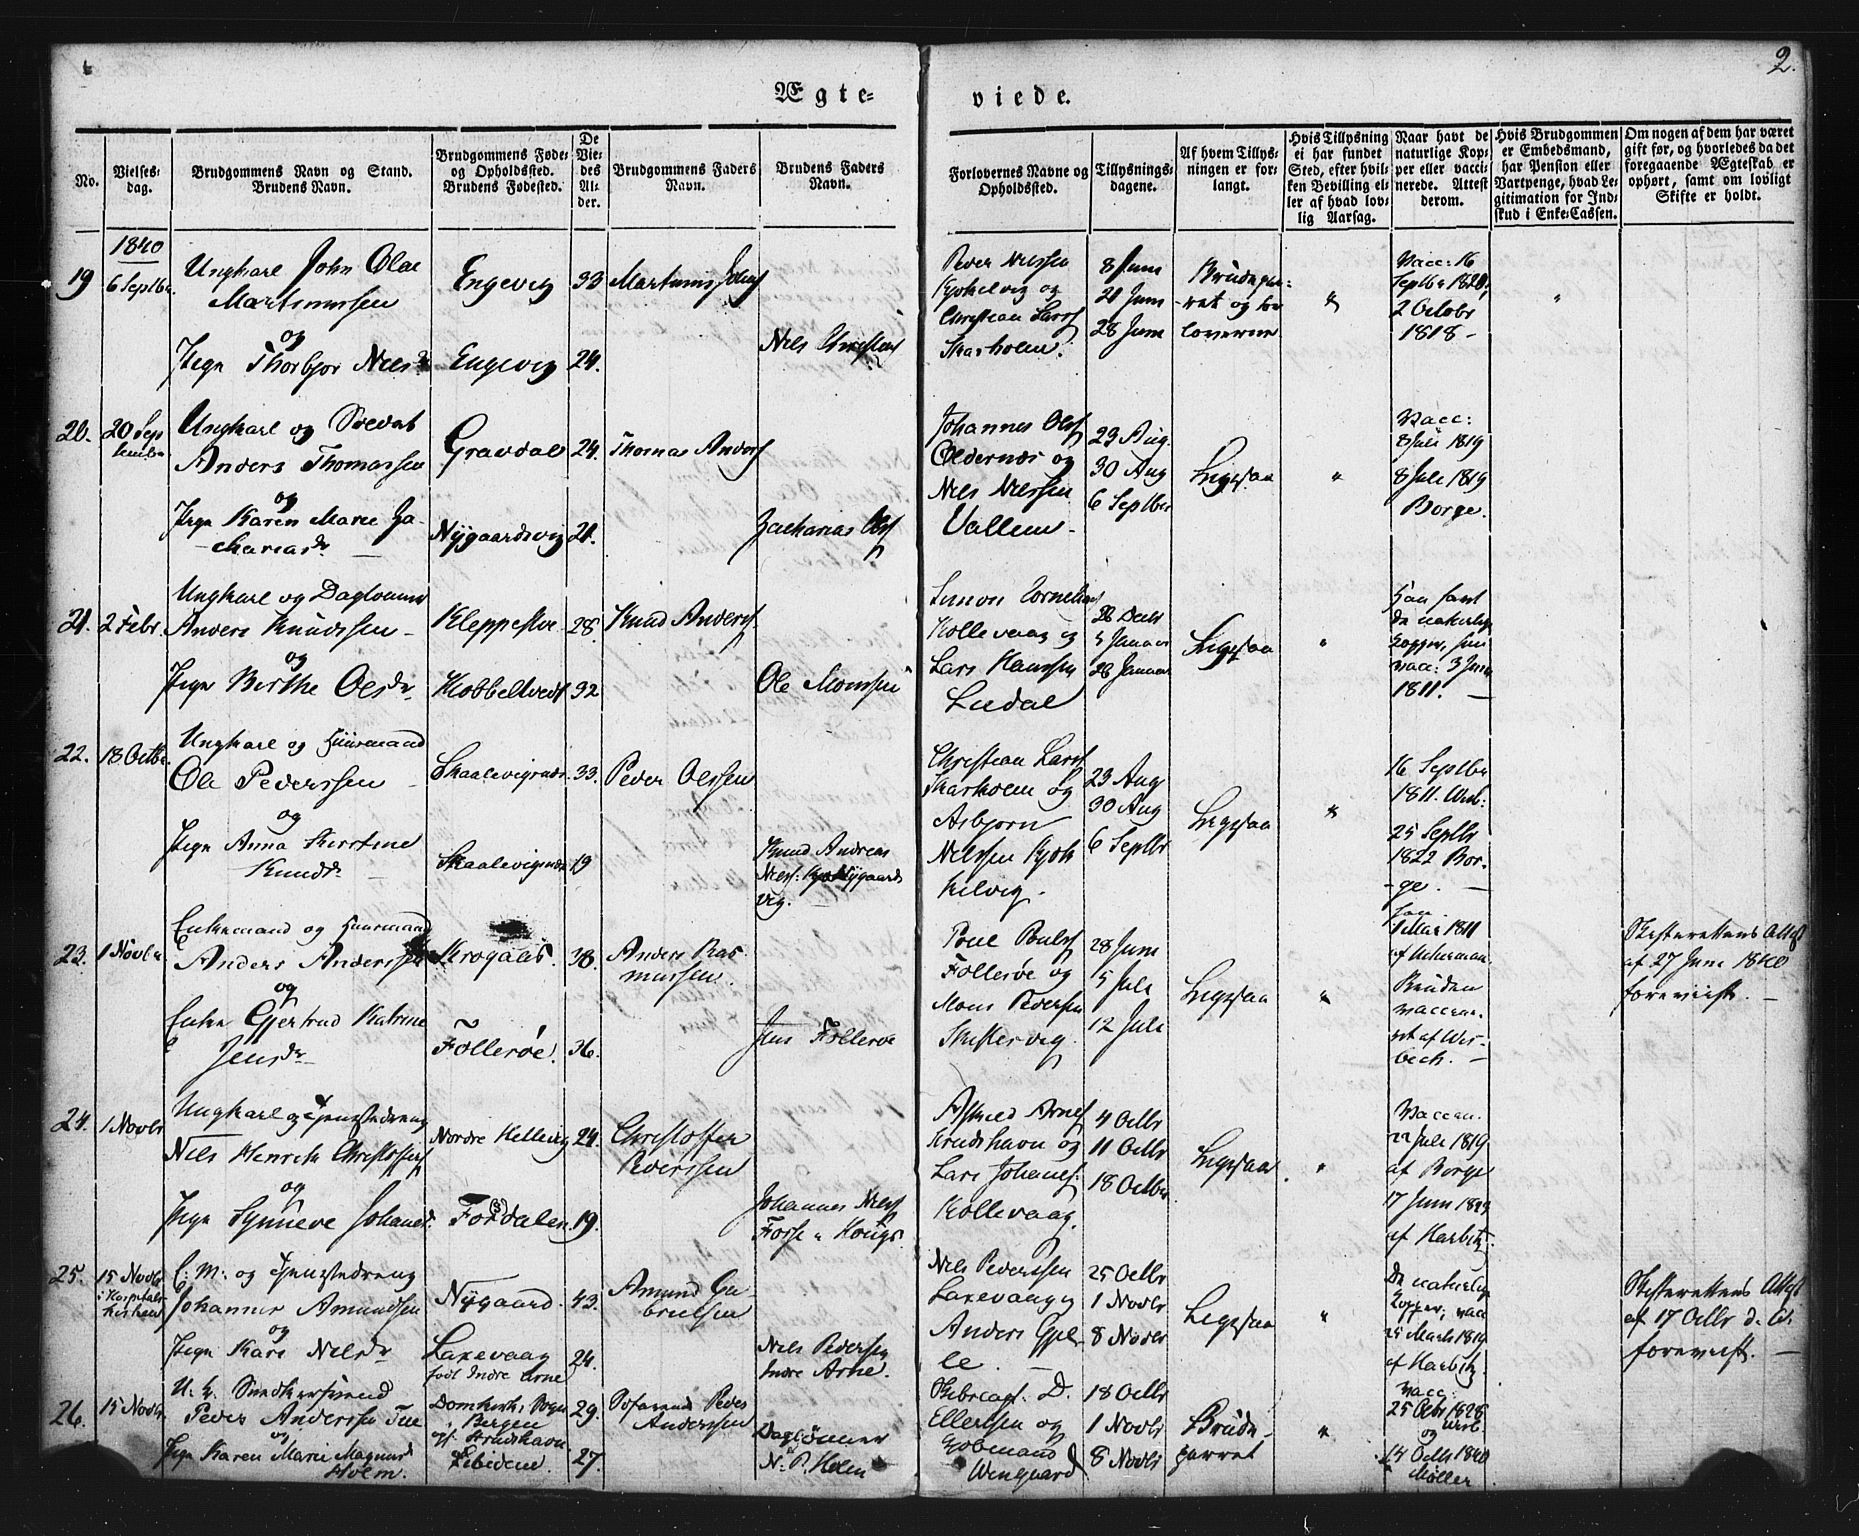 2.
Ægte-
viede.
No.
Vielses-
dag.
Brudgommens Navn og Stand.
Brudens Navn.
Brudgommens Føde-
og Opholdssted.
Brudens Fødested.
De
Vie-
des
Al-
der.
Brudgommens Faders
Navn.
Brudens Faders
Navn.
Forlovernes Navne og
Opholdssted.
Tillysnings-
dagene.
Af hvem Tillys-
ningen er for-
langt.
Hvis Tillysning
ei har fundet
Sted, efter hvil-
ken Bevilling el-
ler af hvad lov-
lig Aarsag.
Naar havt de
naturlige Kop-
per eller vacci-
nerede. Attest
derom.
Hvis Brudgommen
er Embedsmand,
har Pension eller
Vartpenge, hvad Le-
gitimation for Ind-
skud i Enke-Cassen.
Om nogen af dem har været
gift før, og hvorledes da det
foregaaende Ægteskab er
ophørt, samt om lovligt
Skifte er holdt.
1840
19
6 Septbr.
Ungkarl John Olai
Martinussen
og
Pige Thorbjør Nielsdr
Engevig
Engevig
33
24.
Martinus Johns
Nils Christens
Peder Nilssen
Kjøkelvig og
Christian Larss
Skarholm.
8 Juni
21 Juni
28 Juni
Brudepar-
ret og for
loverne
"
Vacc: 16
Septbr 1820,
2 Octobr
1818 -
"
20.
20 Sep
tember
Ungkarl og Soldat
Anders Thomassen
og
Pige Karen Marie Za-
chariasdr
Gravdal
Nygaardsvig
24.
21.
Thomas Anders
Zacharias Ols
Johannes Ols
Oldernæs og
Nils Nilssen
Vallem -
23 Aug.
30 Aug
6 Septbr
Ligesaa
"
Vacc:
8 Juli 1819
8 Juli 1819
Borge.
21.
2 Febr
Ungkarl og Dagløanner
Anders Knudssen -
og
Pige Berthe Olsdr
Kleppestø
Kobbeltvedt
28.
32.
Knud Anders
Ole Monsen
Simon Cornelius
Kollevaag og
Lars Hanssen
Ludal
5 Januar
Ligesaa
"
Han havt
de naturlige
Kopper, hun
vacc: 3 Juni
1811. -
22.
18 Octbr.
Ungkarl og Huusmand
Ole Pederssen
og
Pige Anna Kirstine
Knudsdr
Skaalevignæs.
Skaalevignæs
33.
19
Peder Olssen
Knud Andreas
Niels: Nygaards
vig.
Christian Larss
Skarholm og
Asbjørn
Nilssen Kjøk
kelvig.
23 Aug
30 Aug
6 Septbr
Ligesaa
"
16 Septbr
1811. Wesb:
25 Septbr
1822 Bor-
ge. -
23.
1 Novbr
Enkemand og Huusmand
Anders Anderssen
og
Enke Gjertrud Katrine
Jensdr
Krogaas.
Follerøe.
38.
36.
Anders Ras
mussen.
Jens Follerøe
Poul Pouls
Follerøe og
Mons Pedersen
28 Juni
5 Juli
12 Juli
Ligesaa
"
han
1 Mai 1811
Bruden
vaccine-
ret af Wes-
bech. -
Skifterettens Attest
af 27 Juni 1840
foreviist. -
24.
1 Novbr
Ungkarl og Tjenestedreng
Nils Henrik Christoffers
og
Pige Synneve Johansd.
Nordre Kellevig
Fordalen
24.
19.
Christoffer
Pederssen
Johannes Niels
Fosse i Kongs.
Arnes
Strudshavn og
Lars Johans:
Kollevaag.
4 Octbr
11 Octbr
18 Octbr
Ligesaa.
"
Vaccin.
22 Juli 1819
af Borge
17 Juni 1823
af Harbitz.
25.
15 Novbr
i Hospitals-
kirken
E: M: og Tjenestedreng
Johannes Amundsen
og
Pige Kari Nilsdr
Nygaard
Laxevaag
født Indre Arne
43.
24.
Amund Ga
brielsen
Nils Pedersen
Indre Arne.
Nils Pederssen
Laxevaag og
Anders Gjel-
le. -
25 Octbr
1 Novbr
8 Novbr
Ligesaa
"
De naturlige
Kopper, vacc
25 Marts 1819
af Harbitz.
Skifterettens Attest
af 17 Octbr d. A.
foreviist. -
26.
15 Novbr
U. K.
Peder Anderssen
og
Pige Karen Marie Magnusd
Holm.
Domkirk: Sogn
i Bergen
Strudshavn
29.
27.
Peder
Anderssen
Dagleønner
N. P. Holm
D.
Ellertsen og
Kobmand
Wingaard
18 Octbr
1 Novbr
8 Novbr
Brude-
parret
"
vacc:
25 Octbr 1828
Wesb.
og
14 Octbr 1840
Møller